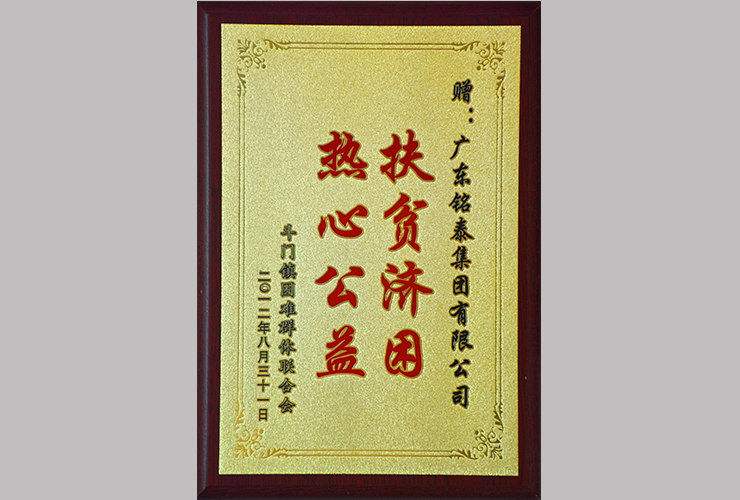 赠：广东铭泰集团有限公司
扶贫济困
热心公益
斗门镇困难群体联合会
二〇一二年八月三十一日